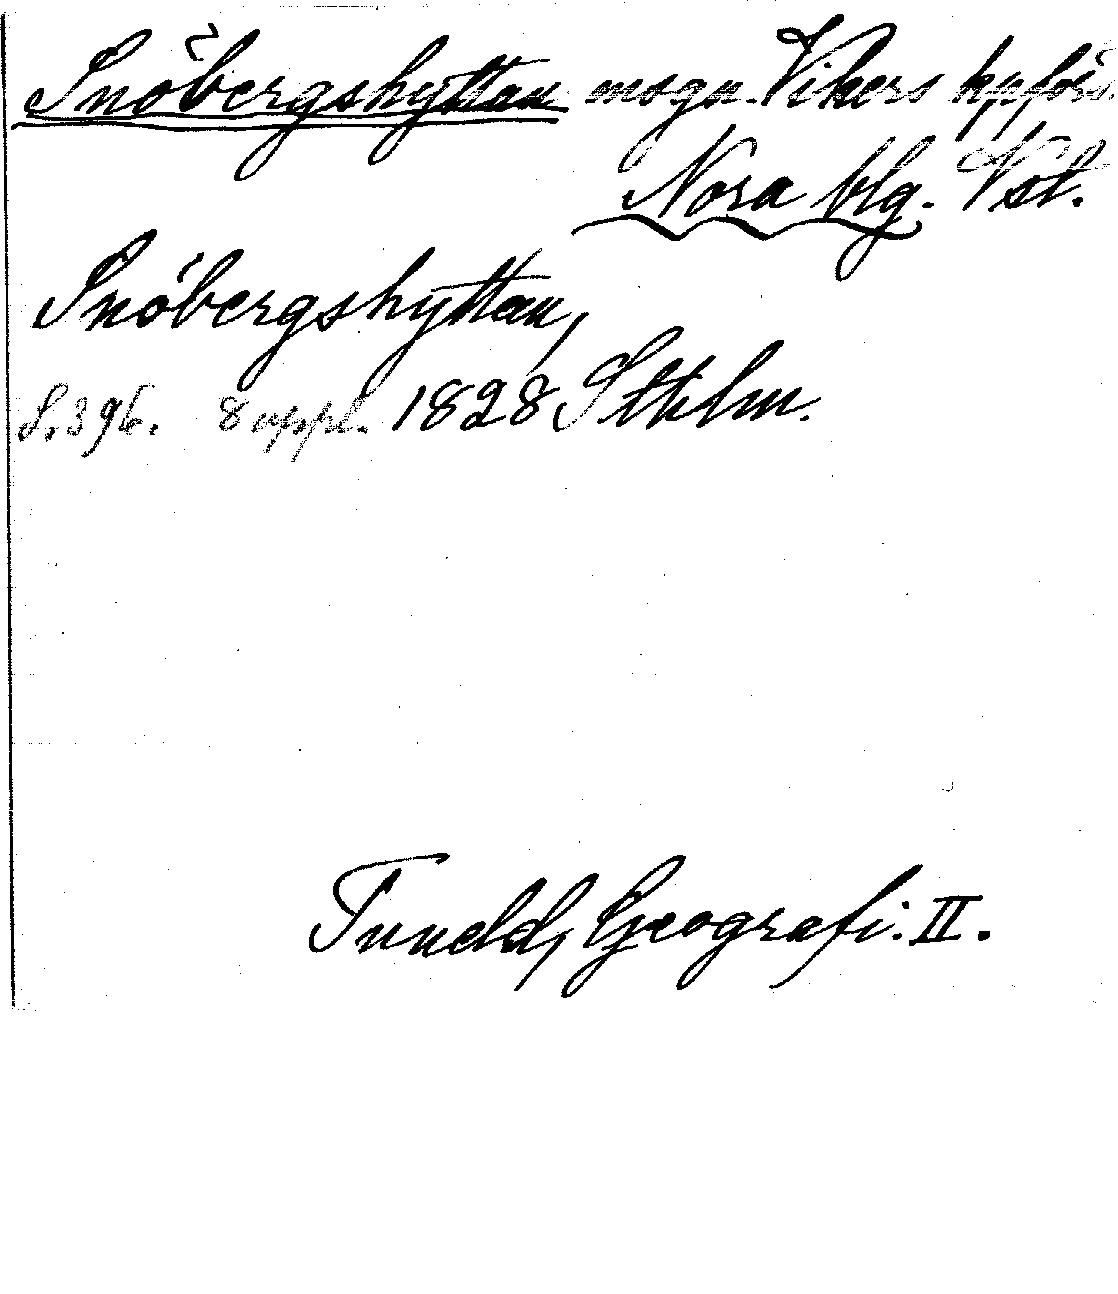 Snöbergshyttan msgn. Vikers kpförs.
Nora blg. Vst.
Snöbergshyttan,
S. 396. 8 uppl. 1828 Sthlm.
Tuneld, Geografi. II.